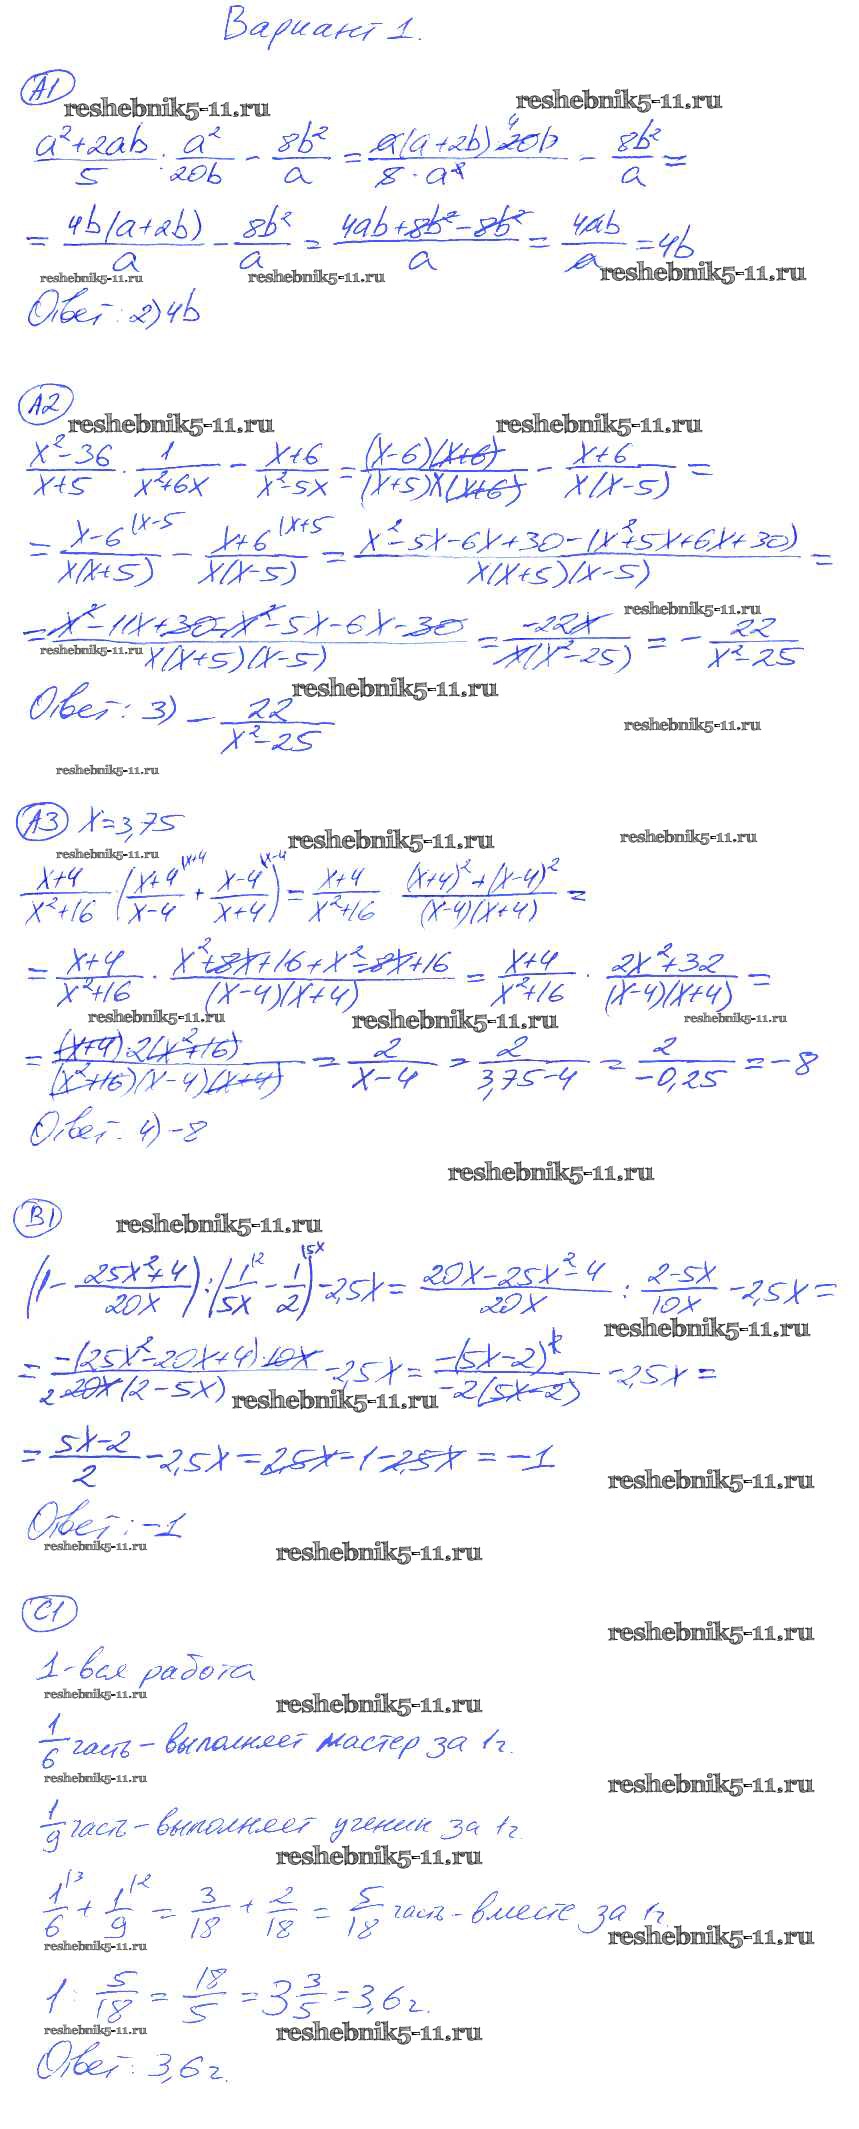 Вариант 1.
А1
reshebnik5-11.ru reshebnik5-11.ru
(a²+2ab)/5 : a²/20b - 8b²/a = a(a+2b) 4 20b/(8·a²) - 8b²/a =
= 4b(a+2b)/a - 8b²/a = (4ab+8b²-8b²)/a = 4ab/a = 4b
reshebnik5-11.ru reshebnik5-11.ru reshebnik5-11.ru
Ответ: 2) 4b
А2
reshebnik5-11.ru reshebnik5-11.ru
(x²-36)/(x+5) · 1/(x²+6x) - (x+6)/(x²-5x) = (x-6)(x+6)/((x+5)x(x+6)) - (x+6)/(x(x-5)) =
= (x-6)/(x(x+5)) |x-5 - (x+6)/(x(x-5)) |x+5 = (x²-5x-6x+30-(x²+5x+6x+30))/(x(x+5)(x-5)) =
reshebnik5-11.ru
= (x²-11x+30-x²-5x-6x-30)/(x(x+5)(x-5)) = -22x/(x(x²-25)) = - 22/(x²-25)
reshebnik5-11.ru
reshebnik5-11.ru
Ответ: 3) - 22/(x²-25)
reshebnik5-11.ru
reshebnik5-11.ru
А3 x=3,75
reshebnik5-11.ru reshebnik5-11.ru
reshebnik5-11.ru
(x+4)/(x²+16) · ((x+4)/(x-4) |x+4 + (x-4)/(x+4) |x-4) = (x+4)/(x²+16) ((x+4)²+(x-4)²)/((x-4)(x+4)) =
= (x+4)/(x²+16) · (x²+8x+16+x²-8x+16)/((x-4)(x+4)) = (x+4)/(x²+16) · (2x²+32)/((x-4)(x+4)) =
reshebnik5-11.ru reshebnik5-11.ru reshebnik5-11.ru
= (x+4)·2(x²+16)/((x²+16)(x-4)(x+4)) = 2/(x-4) = 2/(3,75-4) = 2/(-0,25) = -8
Ответ. 4) -8
reshebnik5-11.ru
В1
reshebnik5-11.ru
(1- (25x²+4)/20x) : (1/5x |2 - 1/2 |5x) -2,5x = (20x-25x²-4)/20x : (2-5x)/10x -2,5x =
reshebnik5-11.ru
= -(25x²-20x+4)·10x/(2 20x(2-5x)) -2,5x = -(5x-2)²/(-2(5x-2)) -2,5x =
reshebnik5-11.ru
= (5x-2)/2 -2,5x = 2,5x-1-2,5x = -1
reshebnik5-11.ru
Ответ: -1
reshebnik5-11.ru reshebnik5-11.ru
С1
reshebnik5-11.ru
1-вся работа
reshebnik5-11.ru reshebnik5-11.ru
1/6 часть - выполняет мастер за 1ч.
reshebnik5-11.ru reshebnik5-11.ru
1/9 часть - выполняет ученик за 1ч.
reshebnik5-11.ru
1/6 |3 + 1/9 |2 = 3/18 + 2/18 = 5/18 часть - вместе за 1ч.
reshebnik5-11.ru reshebnik5-11.ru
1 : 5/18 = 18/5 = 3 3/5 = 3,6ч.
reshebnik5-11.ru reshebnik5-11.ru
Ответ: 3,6ч.